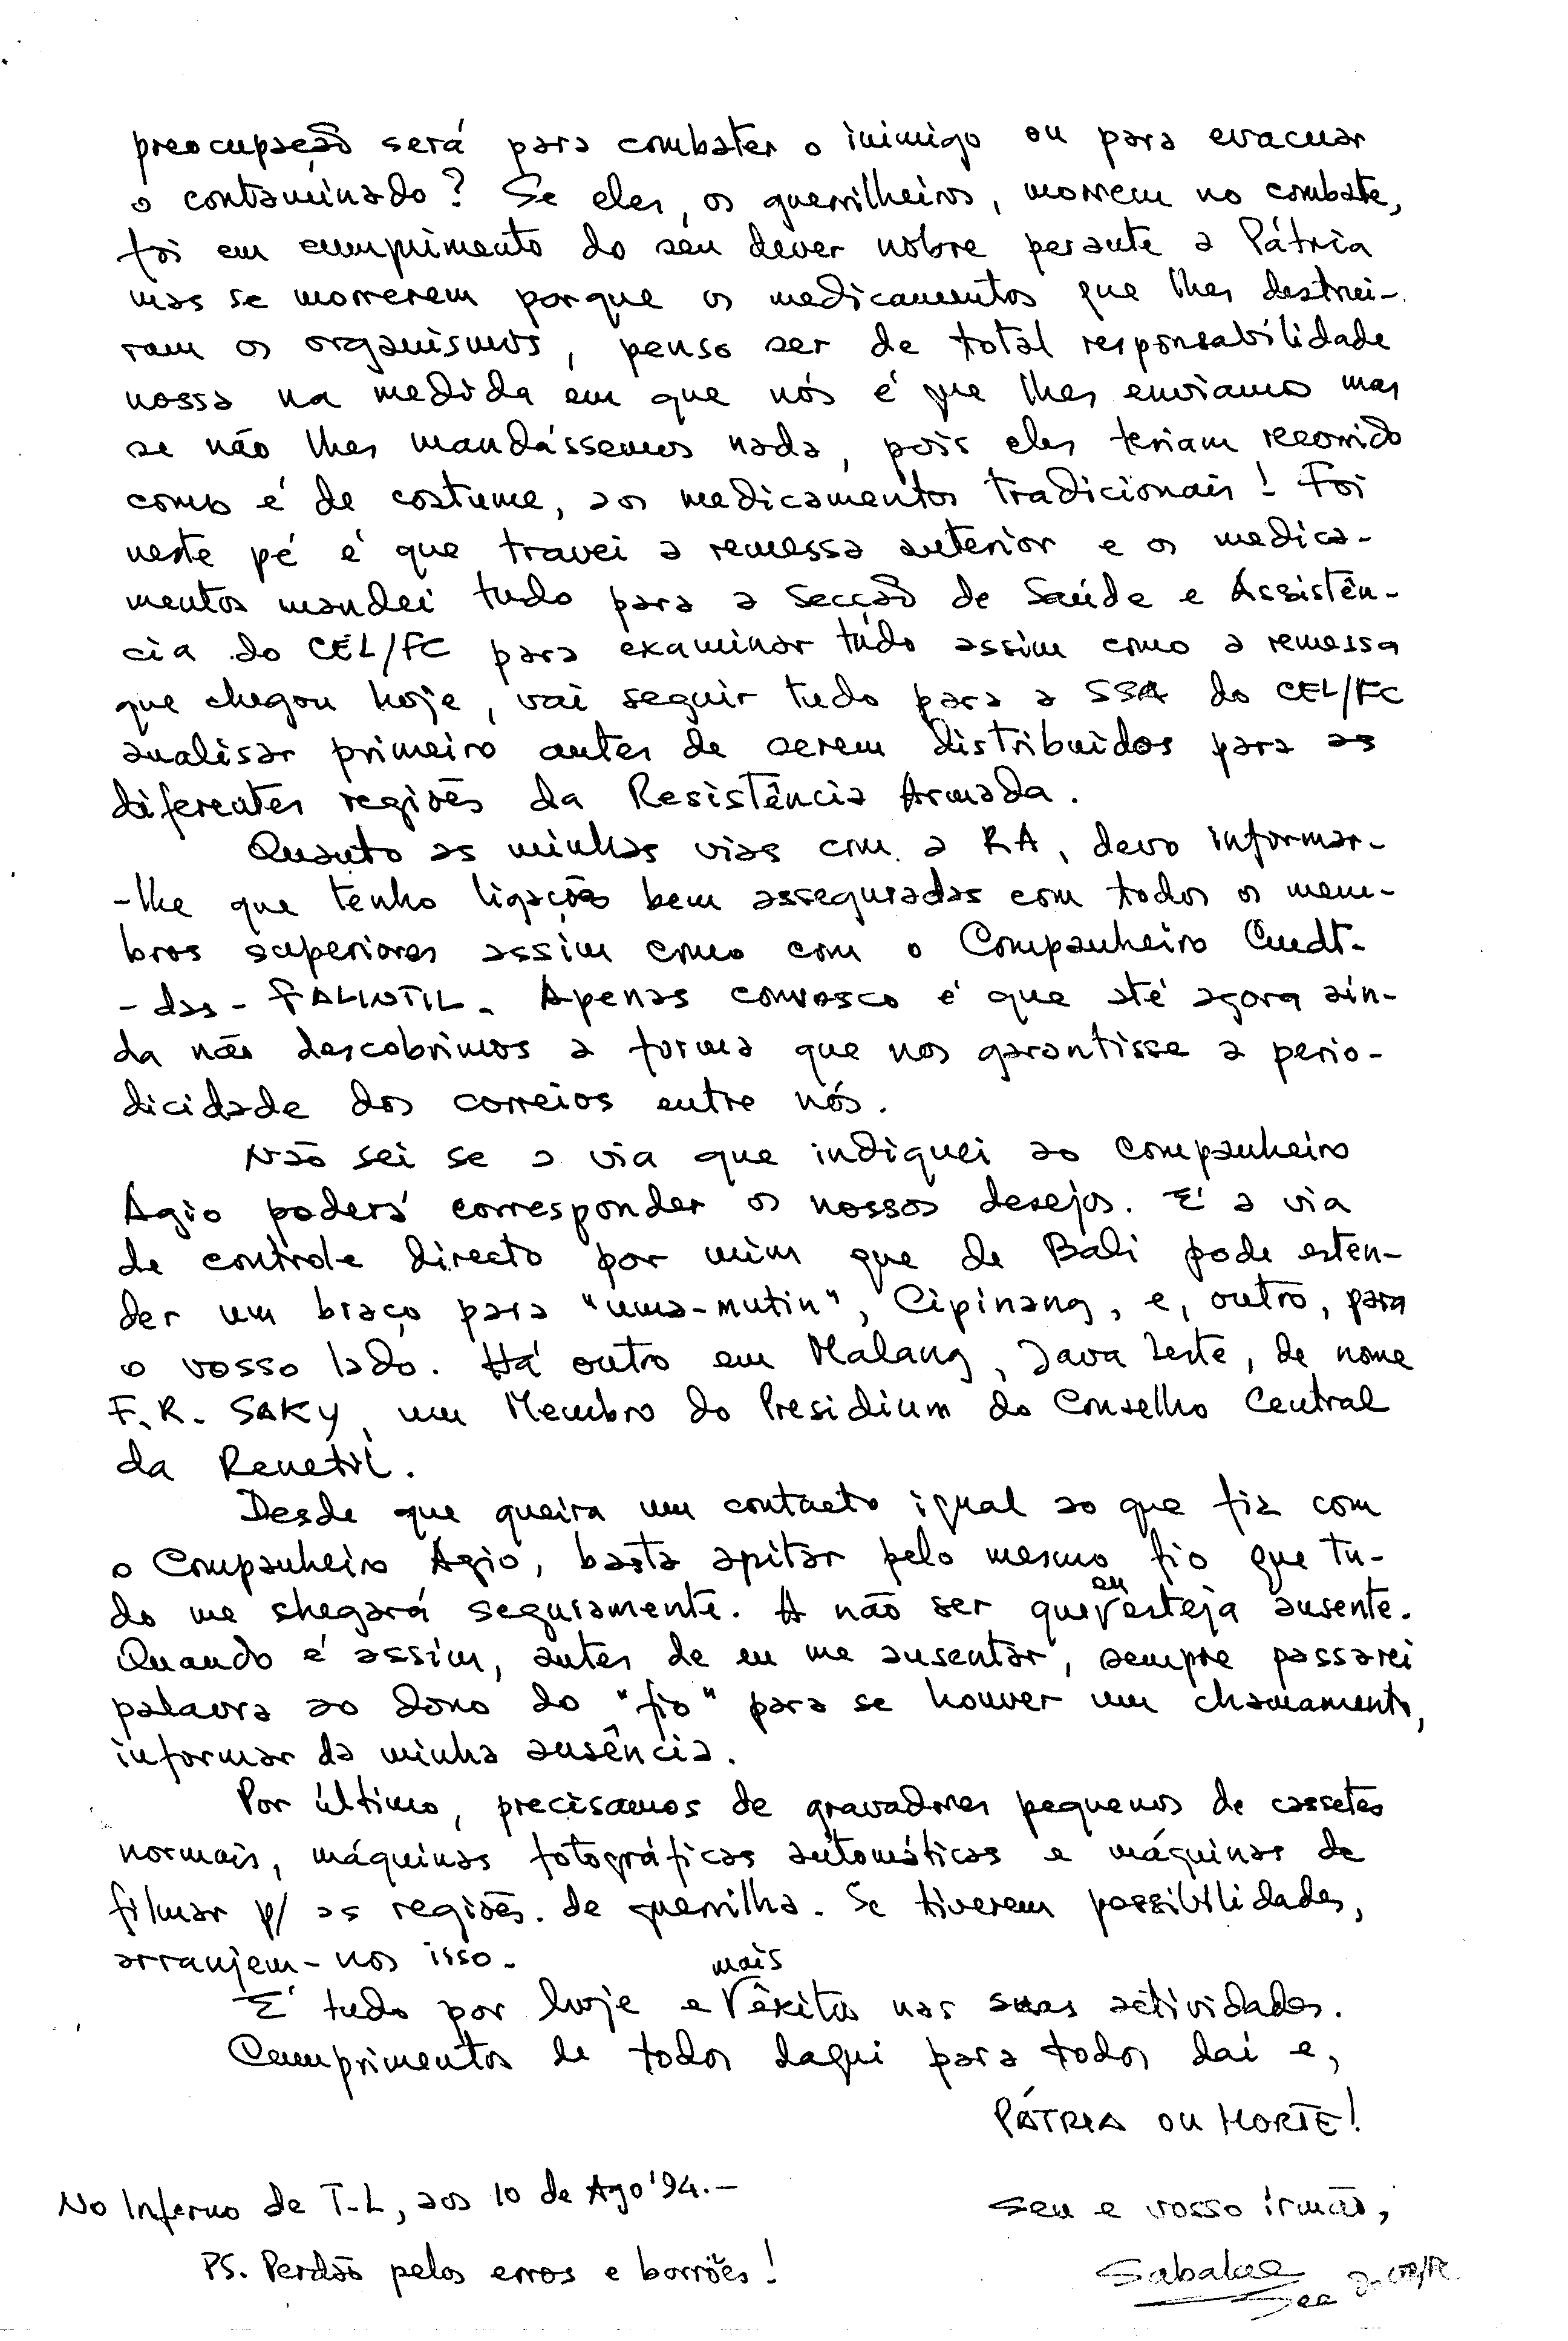 preocupação será para combater o inimigo ou para evacuar
o contaminado? Se eles, os guerrilheiros, morrem no combate,
foi em cumprimento do seu dever nobre perante a Pátria
mas se morrerem porque os medicamentos que lhes destrui-
ram os organismos, penso ser de total responsabilidade
nossa na medida em que nós é que lhes enviamos mas
se não lhes mandássemos nada, pois eles teriam recorrido
como é de costume, aos medicamentos tradicionais! Foi
neste pé é que travei a remessa anterior e os medica-
mentos mandei tudo para a Secção de Saúde e Assistên-
cia do CEL/FC para examinar tudo assim como a remessa
que chegou hoje, vai seguir tudo para a SSA do CEL/FC
analisar primeiro antes de serem distribuidos para as
diferentes regiões da Resistência Armada.
Quanto as minhas vias com a RA, devo informar-
-lhe que tenho ligações bem asseguradas com todos os mem-
bros superiores assim como com o Companheiro Cmdt-
-das-FALINTIL. Apenas convosco é que até agora ain-
da não descobrimos a forma que nos garantisse a perio-
dicidade dos correios entre nós.
Não sei se a via que indiquei ao Companheiro
Ágio poderá corresponder os nossos desejos. É a via
de controle directo por mim que de Bali pode esten-
der um braço para "uma-mutin", Cipinang, e, outro, para
o vosso lado. Há outro em Malang, Java Leste, de nome
F.R. SAKY, um Membro do Presidium do Conselho Central
da Renetil.
Desde que queira um contacto igual ao que fiz com
o Companheiro Ágio, basta apitar pelo mesmo fio que tu-
do me chegará seguramente. A não ser que eu esteja ausente.
Quando é assim, antes de eu me ausentar, sempre passarei
palavra ao dono do "fio" para se houver um chamamento,
informar da minha ausência.
Por último, precisamos de gravadores pequenos de cassetes
normais, máquinas fotográficas automáticas e máquinas de
filmar p/ as regiões de guerrilha. Se tiverem possibilidades,
arranjem-nos isso.
É tudo por hoje e mais êxitos nas suas actividades.
Cumprimentos de todos daqui para todos daí e,
PÁTRIA OU MORTE!
No Inferno de T-L, aos 10 de Ago'94.-
Seu e vosso irmão,
PS. Perdão pelos erros e borrões!
Sabalae
Sec do CEL/FC